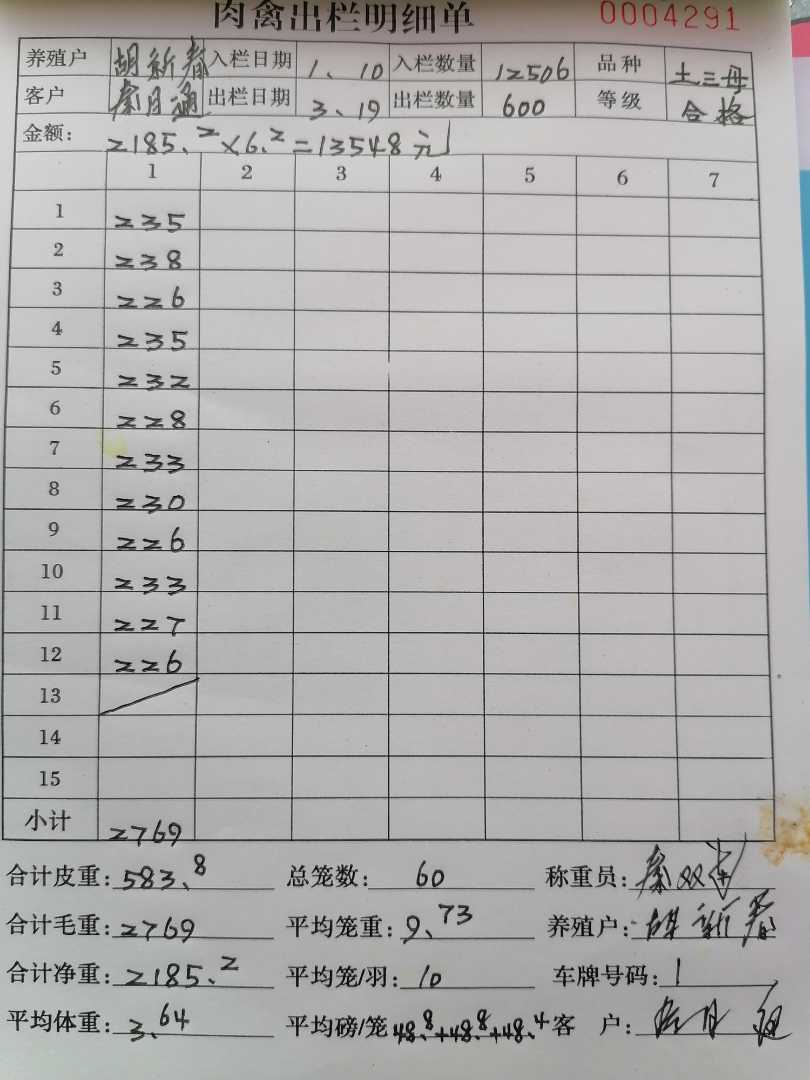 肉禽出栏明细单 0004291
养殖户 胡新春 入栏日期 1、10 入栏数量 12506 品种 土三母
客户 秦月通 出栏日期 3、19 出栏数量 600 等级 合格
金额: 2185.2×6.2=13548元
1 2 3 4 5 6 7
1 235
2 238
3 226
4 235
5 232
6 228
7 233
8 230
9 226
10 233
11 227
12 226
13
14
15
小计 2769
合计皮重: 583.8 总笼数: 60 称重员: 秦双
合计毛重: 2769 平均笼重: 9.73 养殖户: 胡新春
合计净重: 2185.2 平均笼/羽: 10 车牌号码:
平均体重: 3.64 平均磅/笼 48.8+48.8+48.4 客 户: